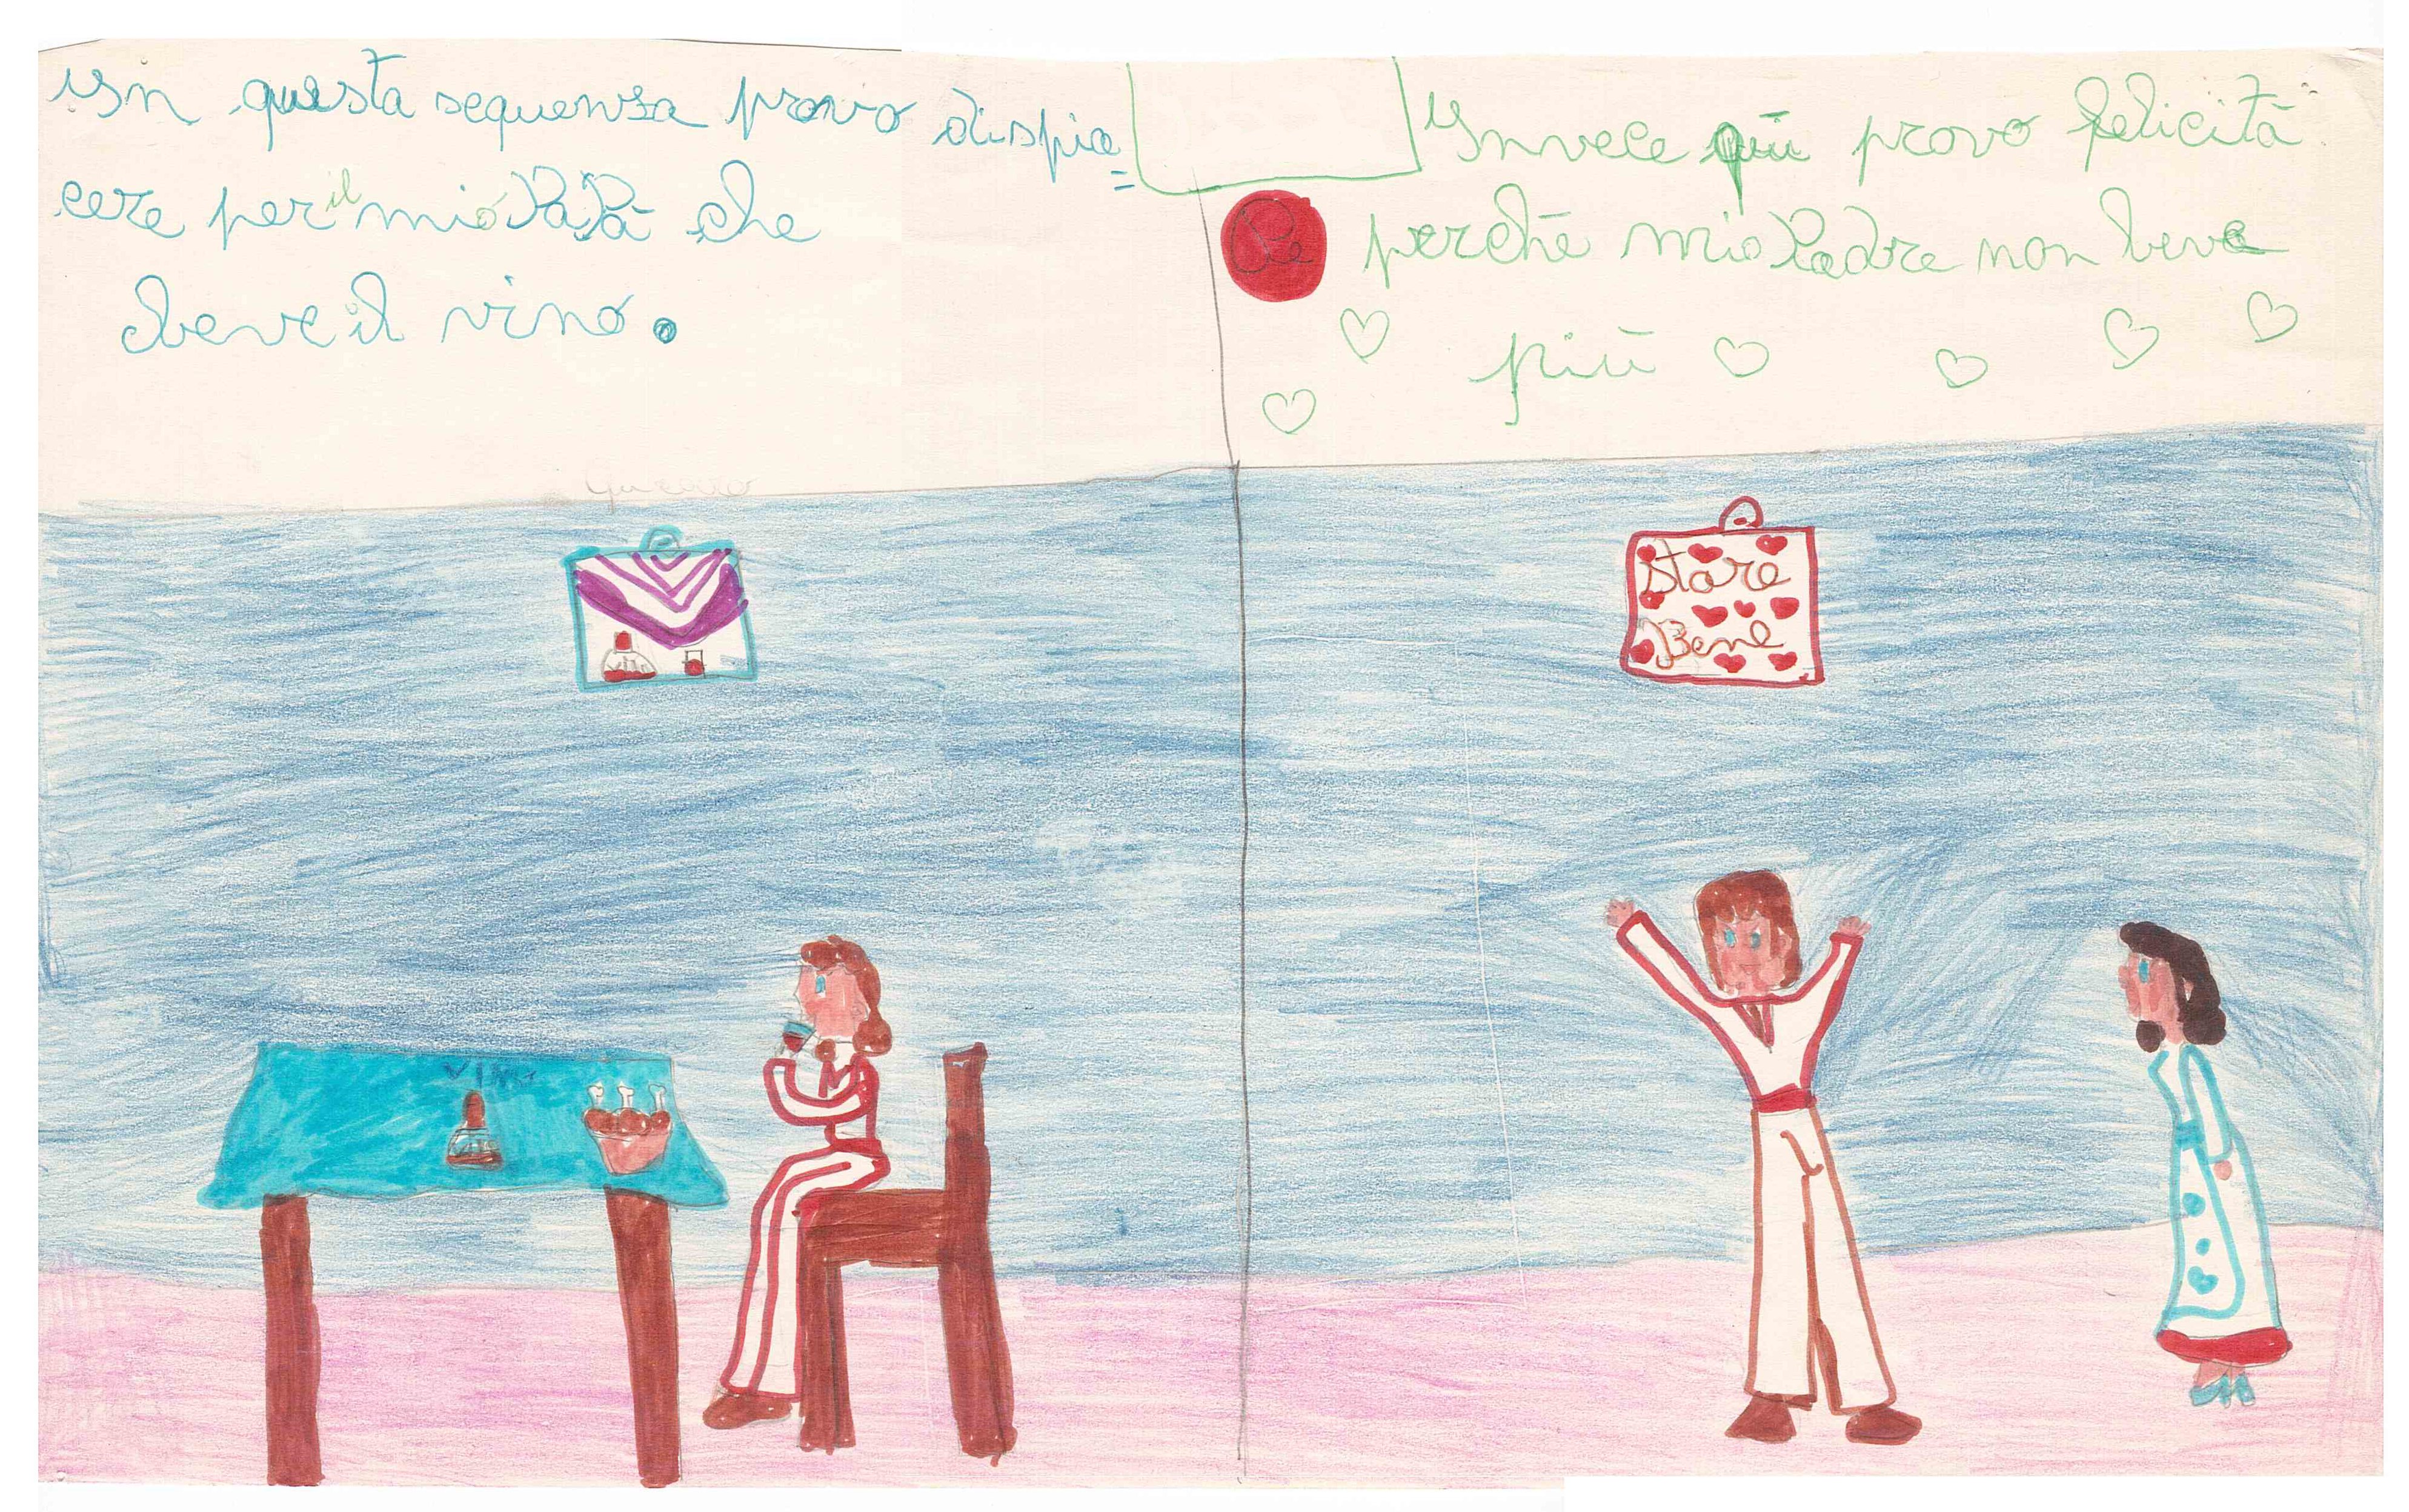 In questa sequenza provo dispia=
cere per il mio Papà che
beve il vino.
Invece qui provo felicità
perchè mio Padre non beve
più
Stare
Bene